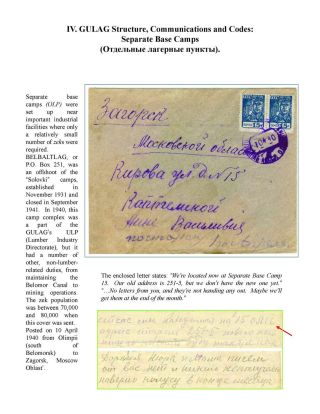 IV. GULAG Structure, Communications and Codes:
Separate Base Camps
(Отдельные лагерные пункты).
Separate base
camps (OLP) were
set up near
important industrial
facilities where only
a relatively small
number of zeks were
required.
BELBALTLAG, or
P.O. Box 251, was
an offshoot of the
"Solovki" camps,
established in
November 1931 and
closed in September
1941. In 1940, this
camp complex was
a part of the
GULAG's ULP
(Lumber Industry
Directorate), but it
had a number of
other, non-lumber-
related duties, from
maintaining the
Belomor Canal to
mining operations.
The zek population
was between 70,000
and 80,000 when
this cover was sent.
Posted on 10 April
1940 from Olimpii
(south of
Belomorsk) to
Zagorsk, Moscow
Oblast'.
Загорск
Московской области
Кирова ул. д. № 15
Анне Васильевне
The enclosed letter states: "We're located now at Separate Base Camp
15. Our old address is 251-5, but we don't have the new one yet."
"...No letters from you, and they're not handing out. Maybe we'll
get them at the end of the month."
сейчас мы находимся на 15 ОЛП
адрес старый 251-5
писем
от вас нет и
наверно получу в конце месяца